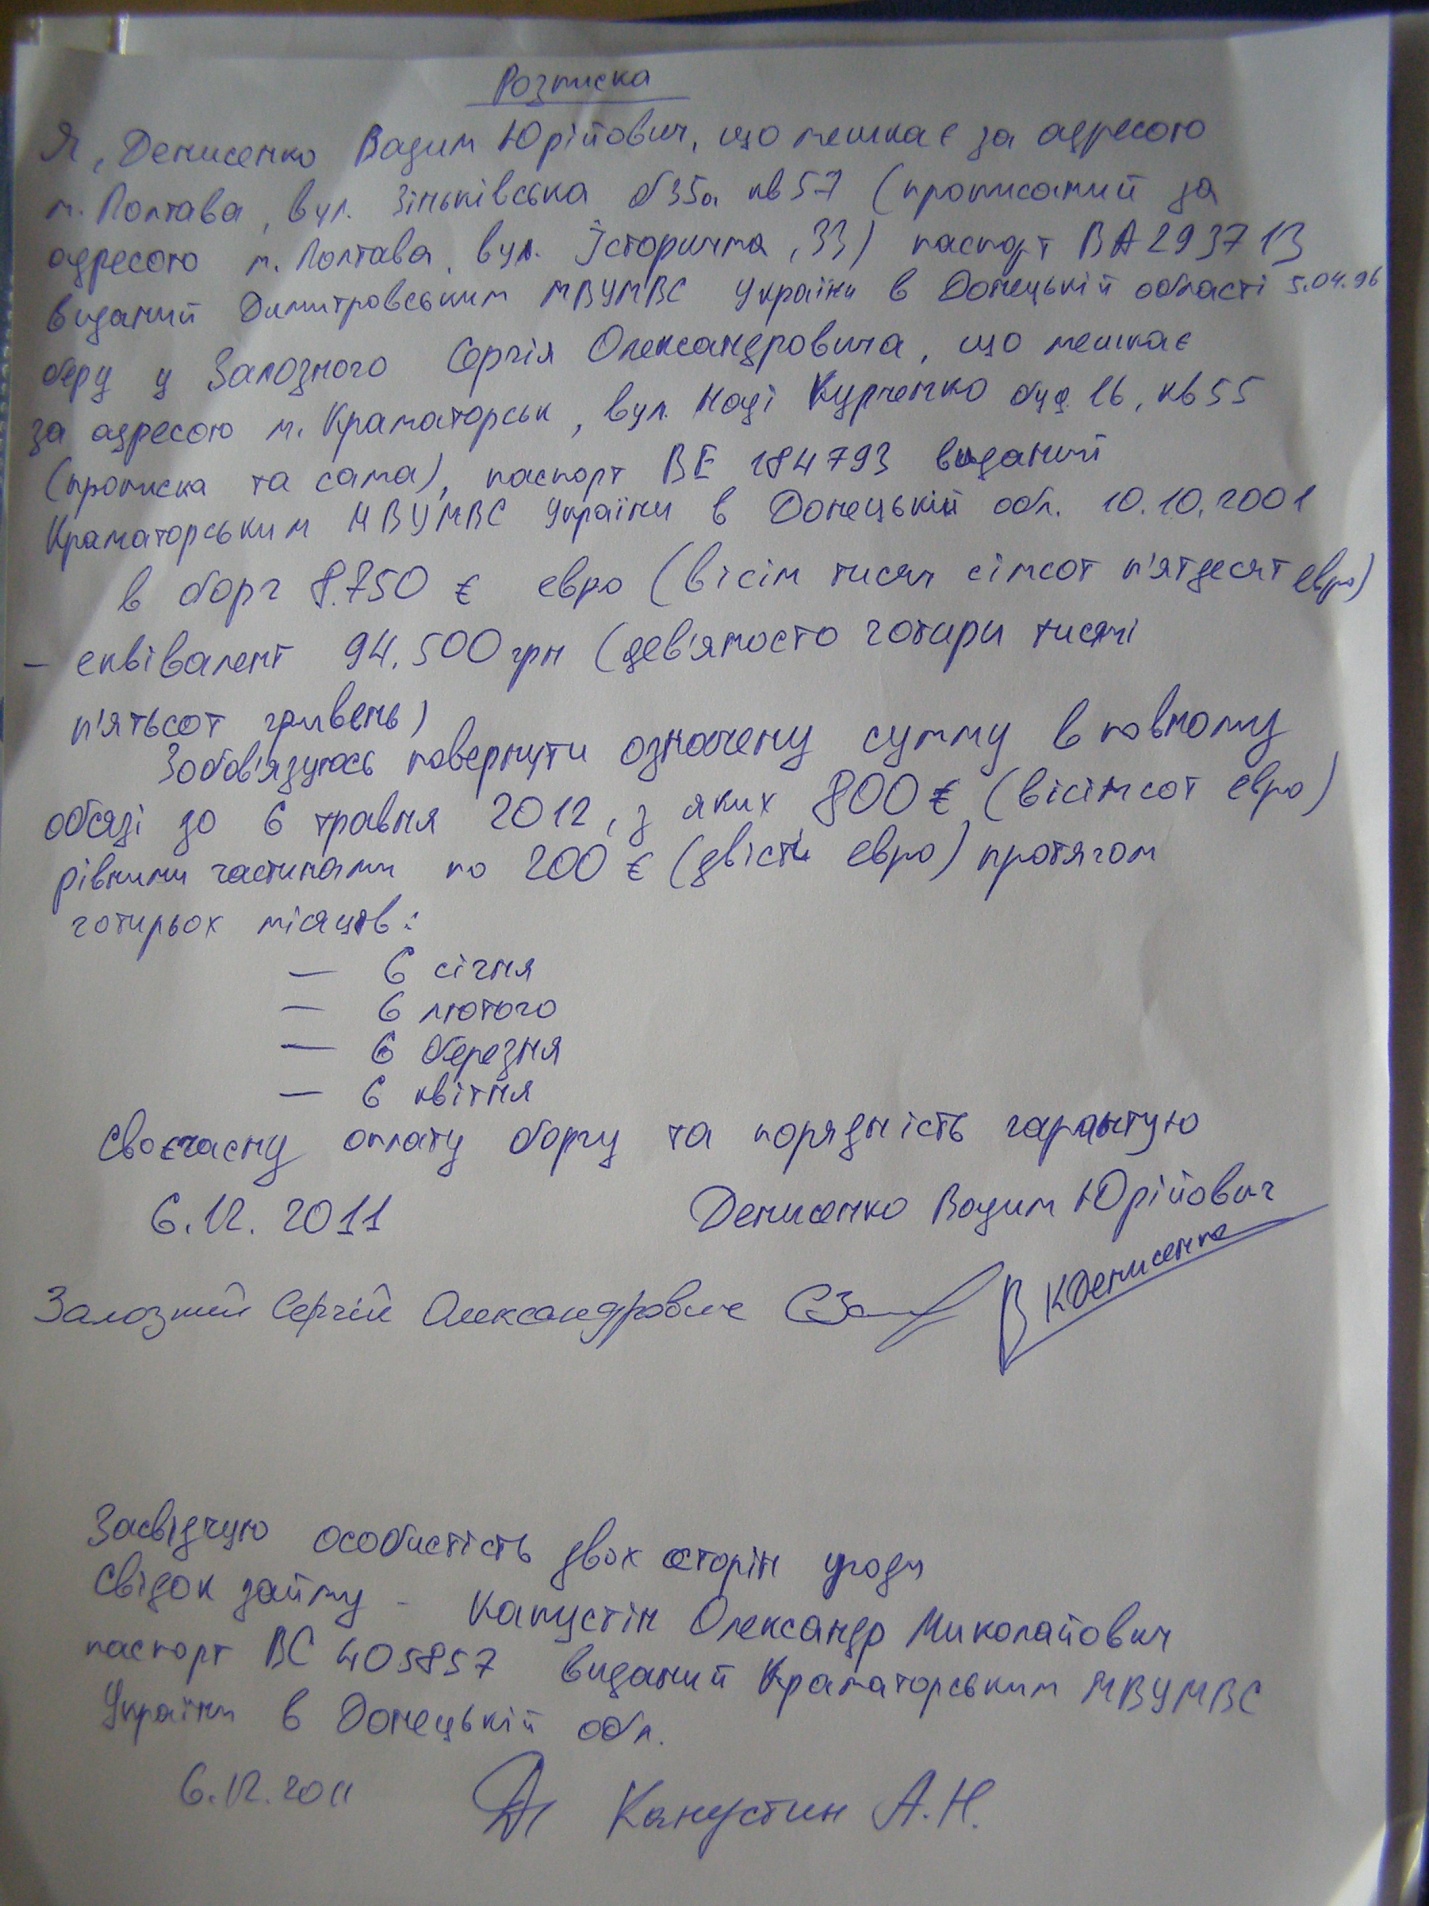 Розписка
Я, Денисенко Вадим Юрійович, що мешкає за адресою
м. Полтава, вул. Зіньківська б35а кв57 (прописаний за
адресою м. Полтава, вул. Історична, 33) паспорт ВА293713
виданий Димитровським МВУМВС України в Донецькій області 5.04.96
беру у Залозного Сергія Олександровича, що мешкає
за адресою м. Краматорськ, вул. Наді Курченко буд. 16, кв55
(прописка та сама), паспорт ВЕ 184793 виданий
Краматорським МВУМВС України в Донецькій обл. 10.10.2001
в борг 8.750 € евро (вісім тисяч сімсот п'ятдесят евро)
– еквівалент 94.500грн (дев'яносто чотири тисячі
п'ятьсот гривень)
Зобов'язуюсь повернути означену сумму в повному
обсязі до 6 травня 2012, з яких 800€ (вісімсот евро)
рівними частинами по 200 € (двісті евро) протягом
чотирьох місяців:
— 6 січня
— 6 лютого
— 6 березня
— 6 квітня
Своєчасну оплату боргу та порядність гарантую
6.12.2011 Денисенко Вадим Юрійович
Залозний Сергій Олександрович
Засвідчую особистість двох сторін угоди
Свідок займу - Капустін Олександр Миколайович
паспорт ВС 405857 виданий Краматорським МВУМВС
України в Донецькій обл.
6.12.2011 Капустин А.Н.